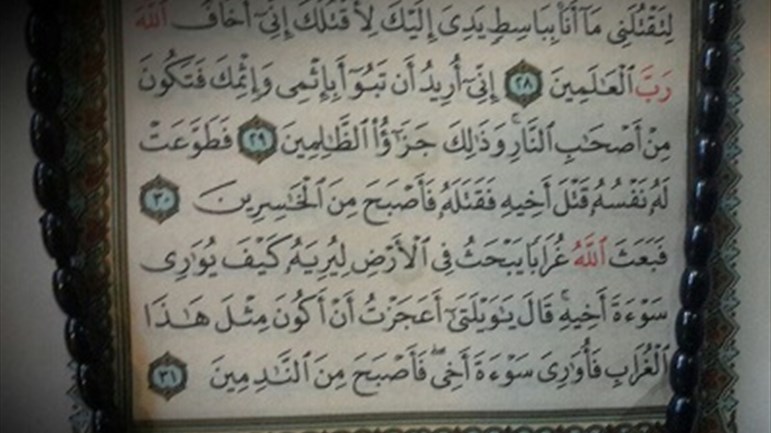 لِتَقْتُلَنِى مَآ أَنَا۠ بِبَاسِطٍ يَدِىَ إِلَيْكَ لِأَقْتُلَكَ إِنِّىٓ أَخَافُ ٱللَّهَ
رَبَّ ٱلْعَٰلَمِينَ ٢٨ إِنِّىٓ أُرِيدُ أَن تَبُوٓأَ بِإِثْمِى وَإِثْمِكَ فَتَكُونَ
مِنْ أَصْحَٰبِ ٱلنَّارِ ۚ وَذَٰلِكَ جَزَٰٓؤُا۟ ٱلظَّٰلِمِينَ ٢٩ فَطَوَّعَتْ
لَهُۥ نَفْسُهُۥ قَتْلَ أَخِيهِ فَقَتَلَهُۥ فَأَصْبَحَ مِنَ ٱلْخَٰسِرِينَ ٣٠
فَبَعَثَ ٱللَّهُ غُرَابًا يَبْحَثُ فِى ٱلْأَرْضِ لِيُرِيَهُۥ كَيْفَ يُوَٰرِى
سَوْءَةَ أَخِيهِ ۚ قَالَ يَٰوَيْلَتَىٰٓ أَعَجَزْتُ أَنْ أَكُونَ مِثْلَ هَٰذَا
ٱلْغُرَابِ فَأُوَٰرِىَ سَوْءَةَ أَخِى ۖ فَأَصْبَحَ مِنَ ٱلنَّٰدِمِينَ ٣١